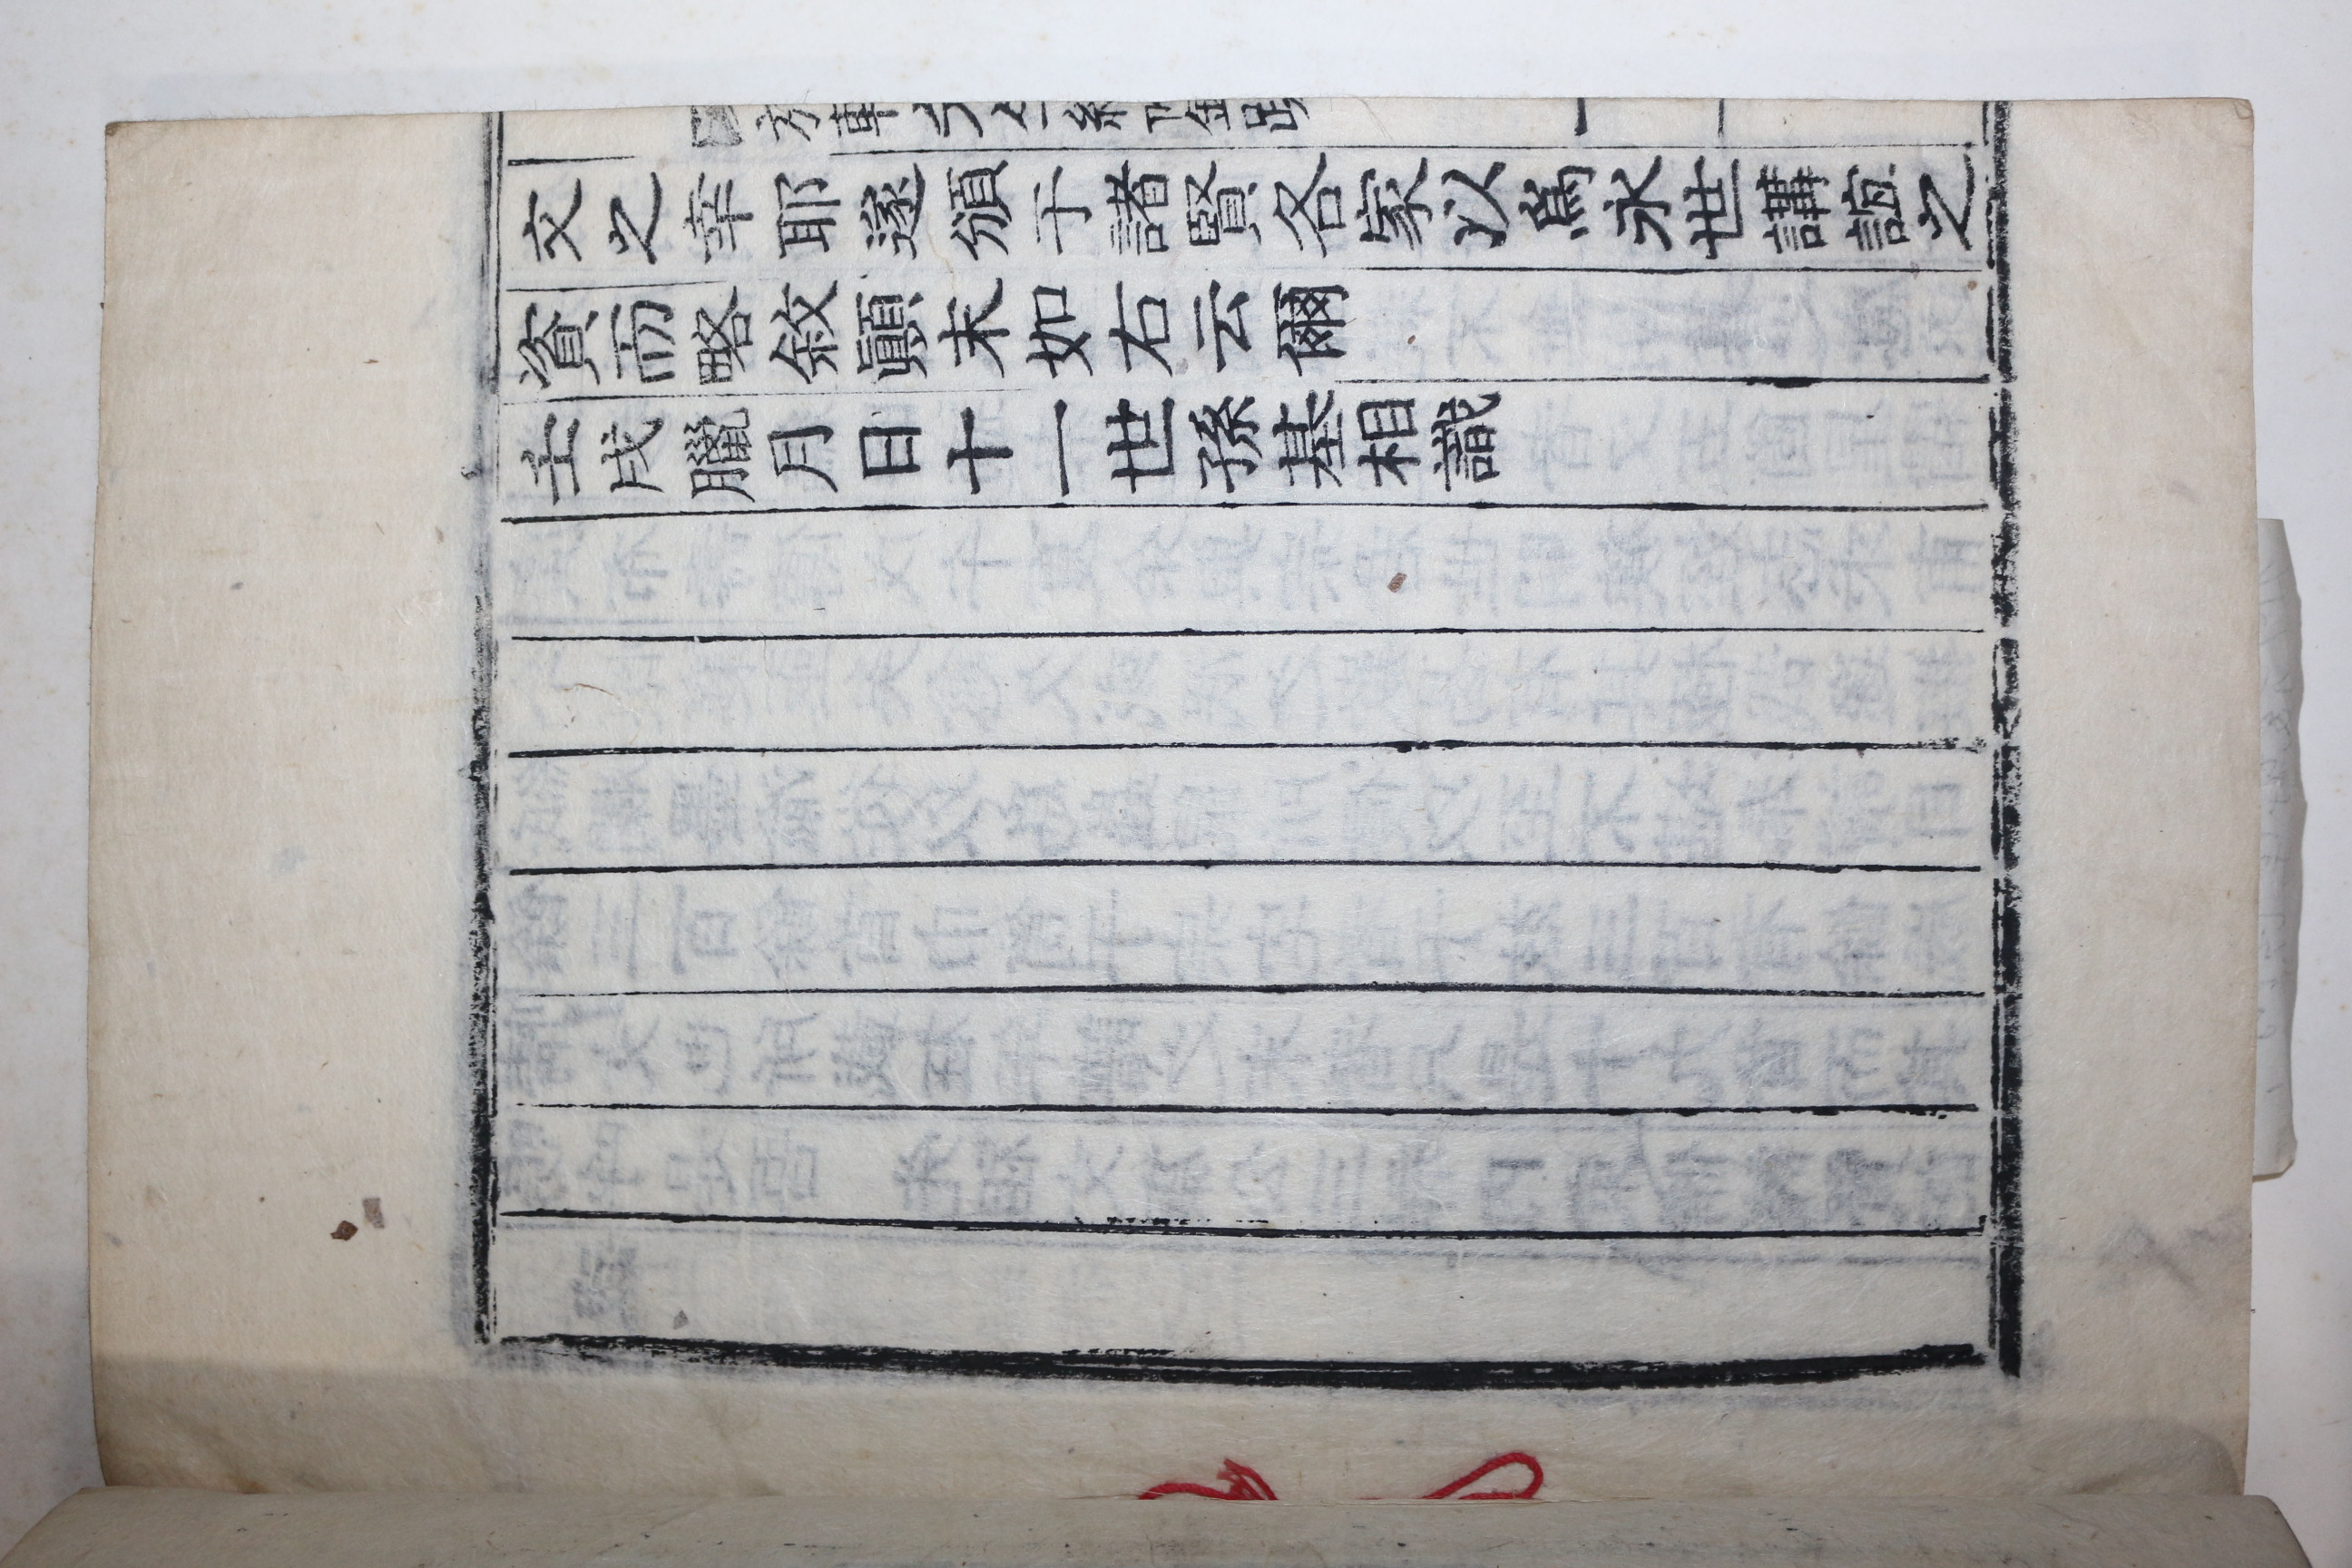 文之幸耶遂頒于諸賢各家以爲永世講誼之
資而略敘顚末如右云爾
壬戌臘月日十一世孫基相識